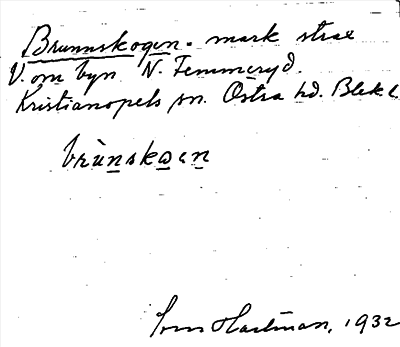 Brunnskogen. mark strax
V. om byn N. Femmeryd.
Kristianopels sn. Östra hd. Blek
brùnskogen
Hartman, 1932